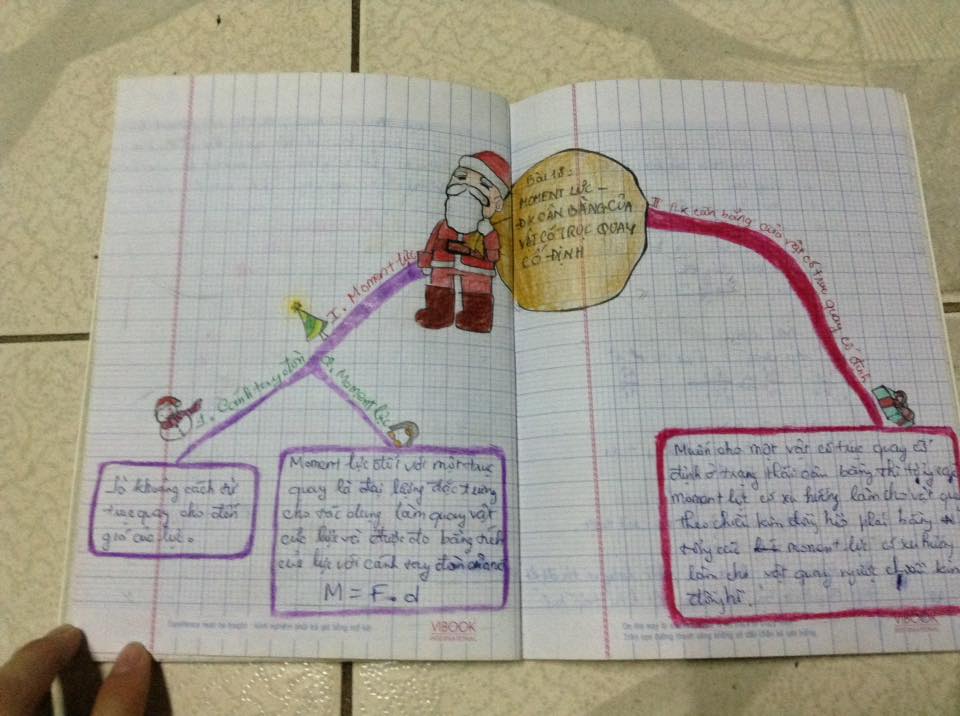 Bài 18:
MOMENT LỰC -
ĐK CÂN BẰNG CỦA
VẬT CÓ TRỤC QUAY
CỐ ĐỊNH
I. Moment lực
1. Cánh tay đòn
2. Moment lực
là khoảng cách từ
trục quay cho đến
giá của lực.
Moment lực đối với một trục
quay là đại lượng đặc trưng
cho tác dụng làm quay vật
của lực và được đo bằng tích
của lực với cánh tay đòn của nó
M = F. d
II. ĐK cân bằng của vật có trục quay cố định
Muốn cho một vật có trục quay cố
định ở trạng thái cân bằng thì tổng các
moment lực có xu hướng làm cho vật quay
theo chiều kim đồng hồ phải bằng
tổng các moment lực có xu hướng
làm cho vật quay ngược chiều kim
đồng hồ.
VIBOOK
INTERNATIONAL
VIBOOK
INTERNATIONAL